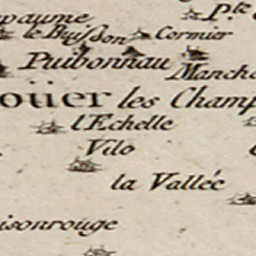 paume
P.te
le Buisson
Cormier
Puibonnau
Manche
oüer les Champ
l'Echelle
Vilo
la Vallée
isonrouge